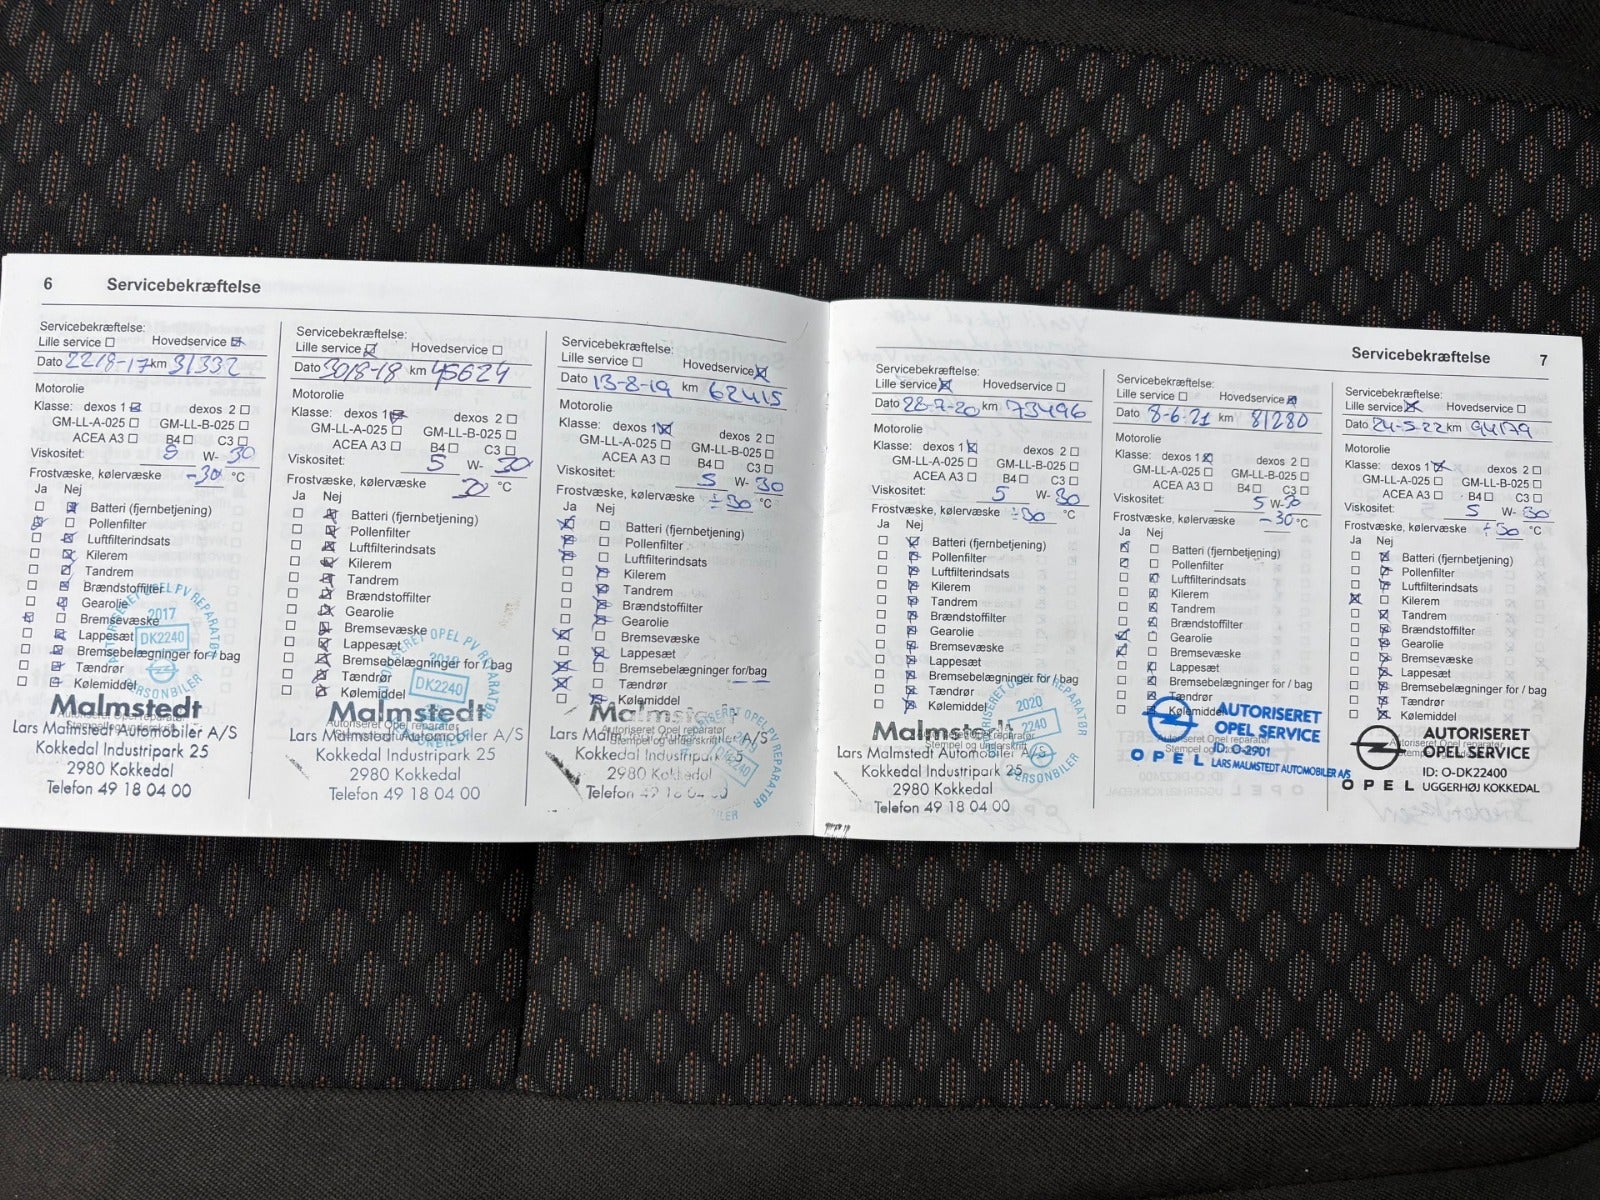 6 Servicebekræftelse
Servicebekræftelse:
Lille service ☐ Hovedservice ☒
Dato 22/8-17 km 31332
Motorolie
Klasse: dexos 1 ☒ dexos 2 ☐
GM-LL-A-025 ☐ GM-LL-B-025 ☐
ACEA A3 ☐ B4 ☐ C3 ☐
Viskositet: 5 W- 30
Frostvæske, kølervæske -30 °C
Ja Nej
☐ ☒ Batteri (fjernbetjening)
☒ ☐ Pollenfilter
☐ ☒ Luftfilterindsats
☐ ☒ Kilerem
☐ ☒ Tandrem
☐ ☒ Brændstoffilter
☐ ☒ Gearolie
☒ ☐ Bremsevæske
☐ ☒ Lappesæt
☐ ☒ Bremsebelægninger for / bag
☐ ☒ Tændrør
☐ ☒ Kølemiddel
AUTORISERET OPEL PV REPARATØR
2017
DK2240
PERSONBILER
Malmstedt
Autoriseret Opel reparatør
Lars Malmstedt Automobiler A/S
Kokkedal Industripark 25
2980 Kokkedal
Telefon 49 18 04 00
Servicebekræftelse:
Lille service ☒ Hovedservice ☐
Dato 30/8-18 km 45624
Motorolie
Klasse: dexos 1 ☒ dexos 2 ☐
GM-LL-A-025 ☐ GM-LL-B-025 ☐
ACEA A3 ☐ B4 ☐ C3 ☐
Viskositet: 5 W- 30
Frostvæske, kølervæske 30 °C
Ja Nej
☐ ☒ Batteri (fjernbetjening)
☐ ☒ Pollenfilter
☐ ☒ Luftfilterindsats
☐ ☒ Kilerem
☐ ☒ Tandrem
☐ ☒ Brændstoffilter
☐ ☒ Gearolie
☐ ☒ Bremsevæske
☐ ☒ Lappesæt
☐ ☒ Bremsebelægninger for / bag
☐ ☒ Tændrør
☐ ☒ Kølemiddel
OPEL PV REPARATØR
DK2240
Malmstedt
Autoriseret Opel reparatør
Lars Malmstedt Automobiler A/S
Kokkedal Industripark 25
2980 Kokkedal
Telefon 49 18 04 00
Servicebekræftelse:
Lille service ☐ Hovedservice ☒
Dato 13-8-19 km 62415
Motorolie
Klasse: dexos 1 ☒ dexos 2 ☐
GM-LL-A-025 ☐ GM-LL-B-025 ☐
ACEA A3 ☐ B4 ☐ C3 ☐
Viskositet: 5 W- 30
Frostvæske, kølervæske ÷30 °C
Ja Nej
☒ ☐ Batteri (fjernbetjening)
☒ ☐ Pollenfilter
☒ ☐ Luftfilterindsats
☐ ☒ Kilerem
☐ ☒ Tandrem
☐ ☒ Brændstoffilter
☐ ☒ Gearolie
☒ ☐ Bremsevæske
☐ ☒ Lappesæt
☒ ☐ Bremsebelægninger for/bag
☒ ☐ Tændrør
☐ ☒ Kølemiddel
Malmstedt
Autoriseret Opel reparatør
Stempel og underskrift
Lars Malmstedt Automobiler A/S
Kokkedal Industripark 25
2980 Kokkedal
Telefon 49 18 04 00
Servicebekræftelse 7
Servicebekræftelse:
Lille service ☒ Hovedservice ☐
Dato 28-7-20 km 73496
Motorolie
Klasse: dexos 1 ☒ dexos 2 ☐
GM-LL-A-025 ☐ GM-LL-B-025 ☐
ACEA A3 ☐ B4 ☐ C3 ☐
Viskositet: 5 W- 30
Frostvæske, kølervæske ÷30 °C
Ja Nej
☐ ☒ Batteri (fjernbetjening)
☐ ☒ Pollenfilter
☐ ☒ Luftfilterindsats
☐ ☒ Kilerem
☐ ☒ Tandrem
☐ ☒ Brændstoffilter
☐ ☒ Gearolie
☐ ☒ Bremsevæske
☐ ☒ Lappesæt
☐ ☒ Bremsebelægninger for / bag
☐ ☒ Tændrør
☐ ☒ Kølemiddel
2020
2240
PERSONBILER
Malmstedt
Autoriseret Opel reparatør
Stempel og underskrift
Lars Malmstedt Automobiler A/S
Kokkedal Industripark 25
2980 Kokkedal
Telefon 49 18 04 00
Servicebekræftelse:
Lille service ☐ Hovedservice ☒
Dato 8-6-21 km 81280
Motorolie
Klasse: dexos 1 ☒ dexos 2 ☐
GM-LL-A-025 ☐ GM-LL-B-025 ☐
ACEA A3 ☐ B4 ☐ C3 ☐
Viskositet: 5 W- 30
Frostvæske, kølervæske -30 °C
Ja Nej
☒ ☐ Batteri (fjernbetjening)
☒ ☐ Pollenfilter
☐ ☒ Luftfilterindsats
☐ ☒ Kilerem
☐ ☒ Tandrem
☐ ☒ Brændstoffilter
☒ ☐ Gearolie
☒ ☐ Bremsevæske
☐ ☒ Lappesæt
☐ ☒ Bremsebelægninger for / bag
☐ ☒ Tændrør
☐ ☒ Kølemiddel
AUTORISERET
OPEL SERVICE
ID: O-2901
OPEL LARS MALMSTEDT AUTOMOBILER A/S
Servicebekræftelse:
Lille service ☒ Hovedservice ☐
Dato 24-5-22 km 94179
Motorolie
Klasse: dexos 1 ☒ dexos 2 ☐
GM-LL-A-025 ☐ GM-LL-B-025 ☐
ACEA A3 ☐ B4 ☐ C3 ☐
Viskositet: 5 W- 30
Frostvæske, kølervæske ÷30 °C
Ja Nej
☐ ☒ Batteri (fjernbetjening)
☐ ☒ Pollenfilter
☐ ☒ Luftfilterindsats
☒ ☐ Kilerem
☐ ☒ Tandrem
☐ ☒ Brændstoffilter
☐ ☒ Gearolie
☐ ☒ Bremsevæske
☐ ☒ Lappesæt
☐ ☒ Bremsebelægninger for / bag
☐ ☒ Tændrør
☐ ☒ Kølemiddel
AUTORISERET
OPEL SERVICE
ID: O-DK22400
OPEL UGGERHØJ KOKKEDAL